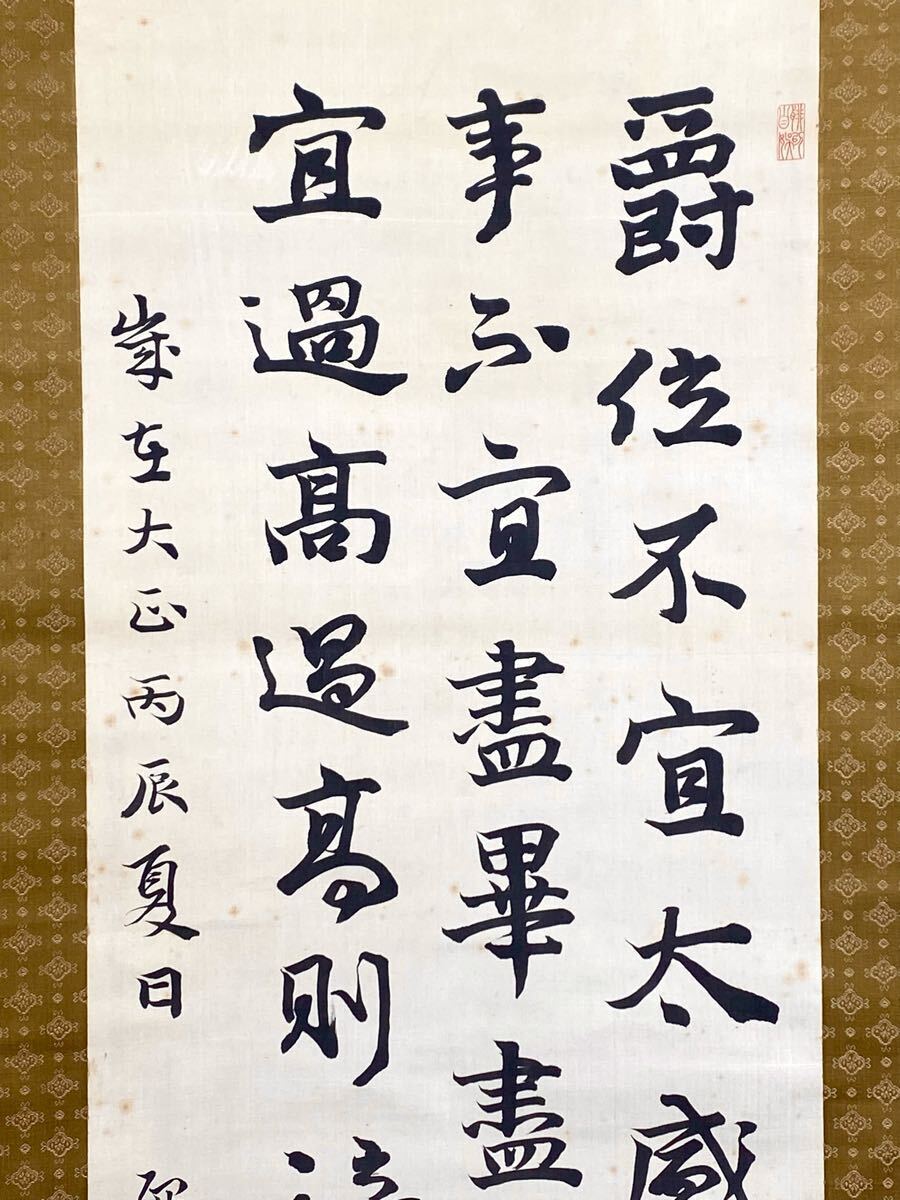 爵位不宜太盛
事不宜盡畢盡
宜過高過高則
歲在大正丙辰夏日